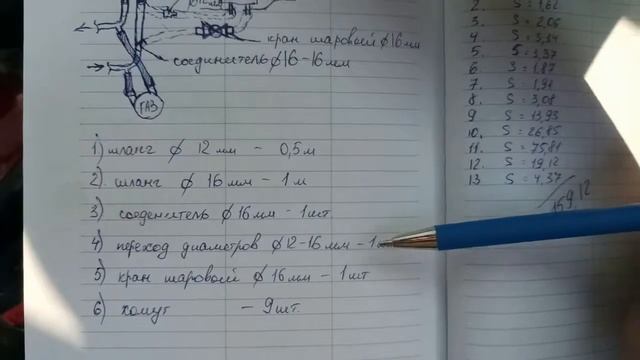 кран шаровой ф16мм
соединитель ф16-16мм
ГАЗ
1) шланг ф 12мм - 0,5м
2) шланг ф 16мм - 1м
3) соеденитель ф16мм - 1шт
4) переход диаметров ф12-16мм - 1
5) кран шаровой ф16мм - 1шт
6) хомут - 9шт.
2. S = 1,62
3. S = 2,06
4. S = 3,34
5. S = 3,37
6 S = 1,87
7. S = 1,91
8. S = 3,08
9 S = 13,93
10. S = 26,85
11. S = 75,81
12. S = 19,12
13 S = 4,37
159,12